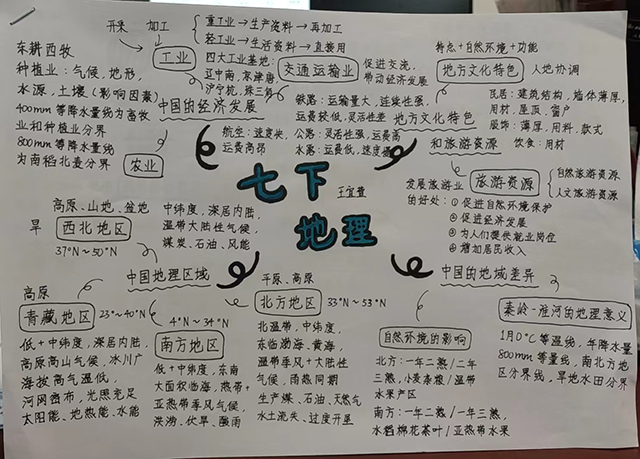 开采 加工
重工业→生产资料→再加工
轻工业→生活资料→直接用
工业
四大工业基地:
辽中南、京津唐、
沪宁杭、珠三角
中国的经济发展
东耕西牧
种植业:气候、地形,
水源,土壤(影响因素)
400mm等降水量线为畜牧
业和种植业分界
800mm等降水量线
为南稻北麦分界
农业
交通运输业
促进交流,
带动经济发展
铁路:运输量大,连续性强,
运费较低,灵活性差
公路:灵活性强,运费高
水路:运费低,速度慢
航空:速度快,
运费高昂
特点+自然环境+功能
地方文化特色
人地协调
民居:建筑结构,墙体薄厚,
用材,屋顶,窗户
服饰:薄厚,用料,款式
饮食:用材
地方文化特色
和旅游资源
旅游资源
自然旅游资源
人文旅游资源
发展旅游业
的好处:①促进自然环境保护
②促进经济发展
③为人们提供就业岗位
④增加居民收入
七下
地理
王宜萱
高原、山地、盆地
旱
西北地区
37°N~50°N
中纬度,深居内陆,
温带大陆性气候,
煤炭、石油、风能
中国地理区域
高原
青藏地区
23°~40°N
低+中纬度,深居内陆,
高原高山气候,冰川广
海拔高气温低,
河网密布,光照充足
太阳能、地热能、水能
4°N~34°N
南方地区
低+中纬度,东南
大面积临海,热带+
亚热带季风气候,
洪涝,伏旱,酸雨
平原、高原
北方地区
33°N~53°N
北温带,中纬度,
东临渤海,黄海,
温带季风+大陆性
气候,雨热同期
生产煤、石油、天然气
水土流失、过度开垦
中国的地域差异
自然环境的影响
北方:一年二熟/二年
三熟,小麦杂粮/温带
水果产区
南方:一年二熟/一年三熟,
水稻棉花茶叶/亚热带水果
秦岭-淮河的地理意义
1月0°C等温线,年降水量
800mm等量线,南北方地
区分界线,旱地水田分界